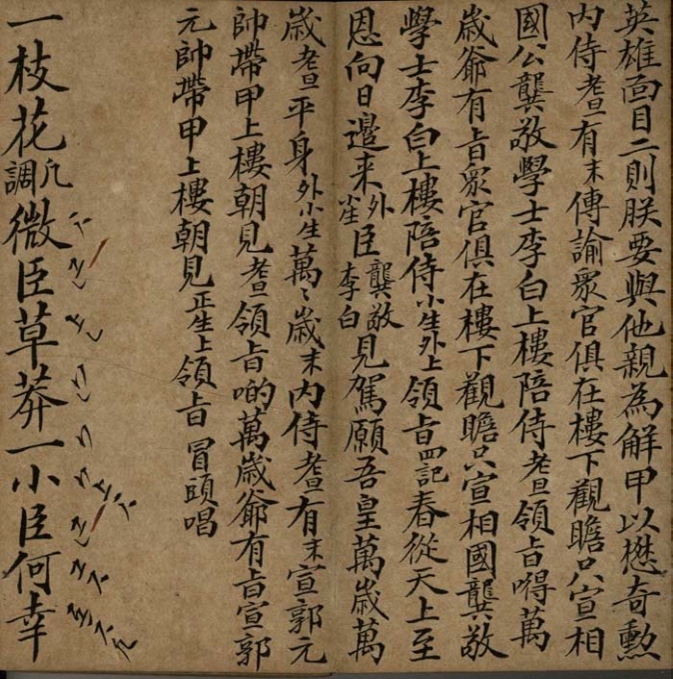 英雄面目二則朕要與他親為解甲以懋奇勲
内侍老旦有末傳諭衆官俱在樓下觀瞻只宣相
國公龔敬學士李白上樓陪侍老旦領旨嘚萬
歲爺有旨衆官俱在樓下觀瞻只宣相國龔敬
學士李白上樓陪侍小生外上領旨四記春從天上至
恩向日邊来外小生臣龔敬李白見駕願吾皇萬歲萬
歲老旦平身外小生萬〻歲末内侍老旦有末宣郭元
帥帶甲上樓朝見老旦領旨喲萬歲爺有旨宣郭
元帥帶甲上樓朝見正生上領旨冒頭唱
一枝花凡調微臣草莽一小臣何幸